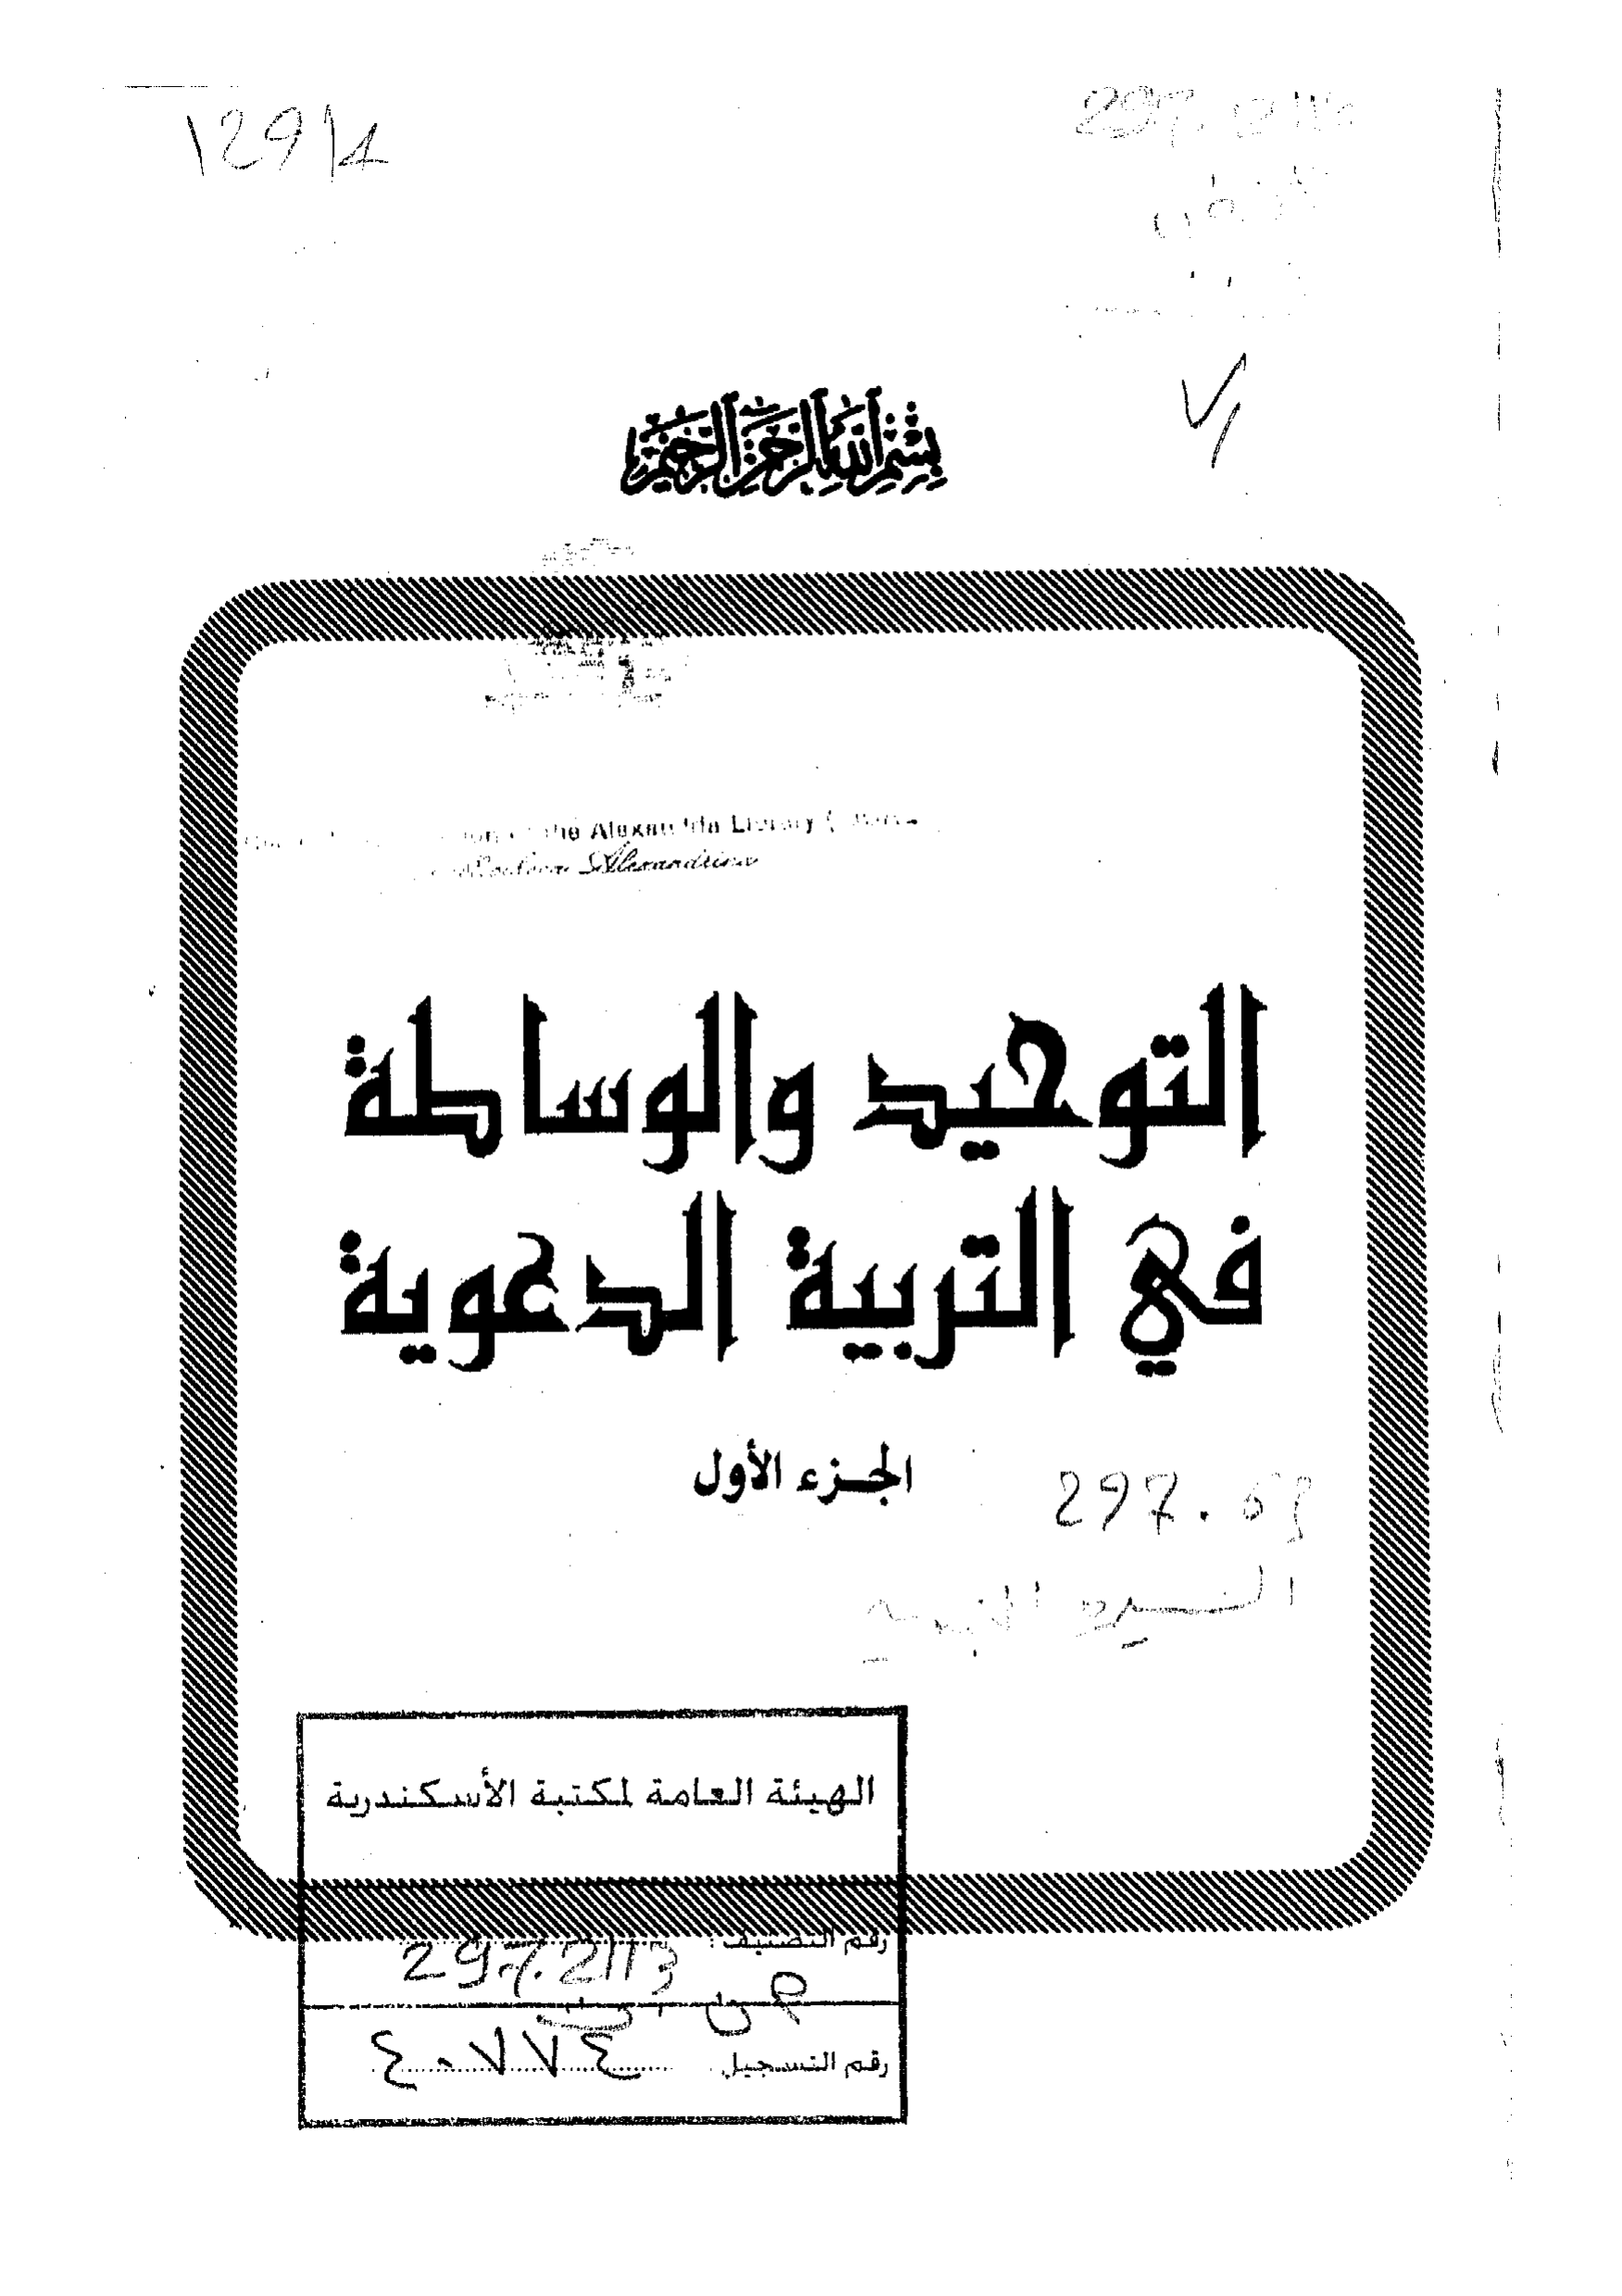 12914
بسم الله الرحمن الرحيم
the Alexandria Library
Alexandrina
التوحيد والوساطة
في التربية الدعوية
الجزء الأول
297.
الهيئة العامة لمكتبة الأسكندرية
رقم التصنيف: 297.2113
رقم التسجيل ٤٠٧٧٤